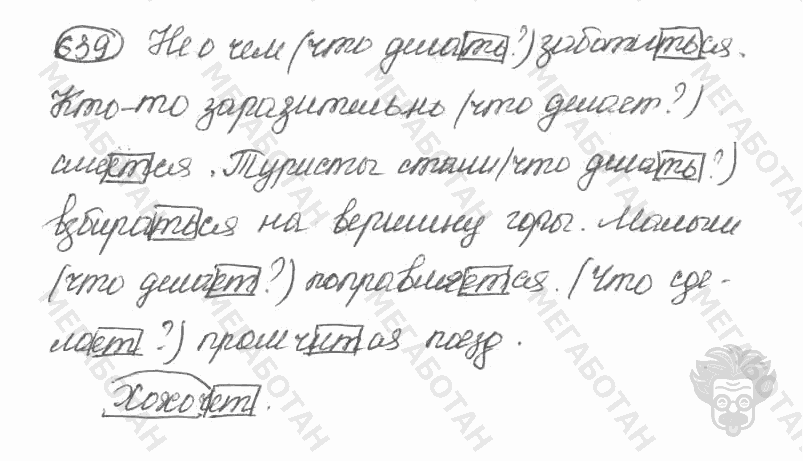 639 Не о чем (что делать?) заботиться.
Кто-то заразительно (что делает?)
смеётся. Туристы стали (что делать?)
взбираться на вершину горы. Малыш
(что делает?) поправляется. (Что сде-
лает?) промчится поезд.
Хохочет.
МЕГАБОТАН